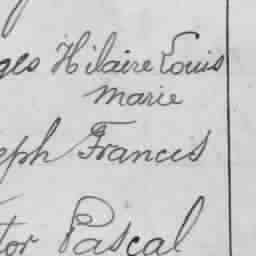 ges Hilaire Louis
Marie
eph Francis
tor Pascal